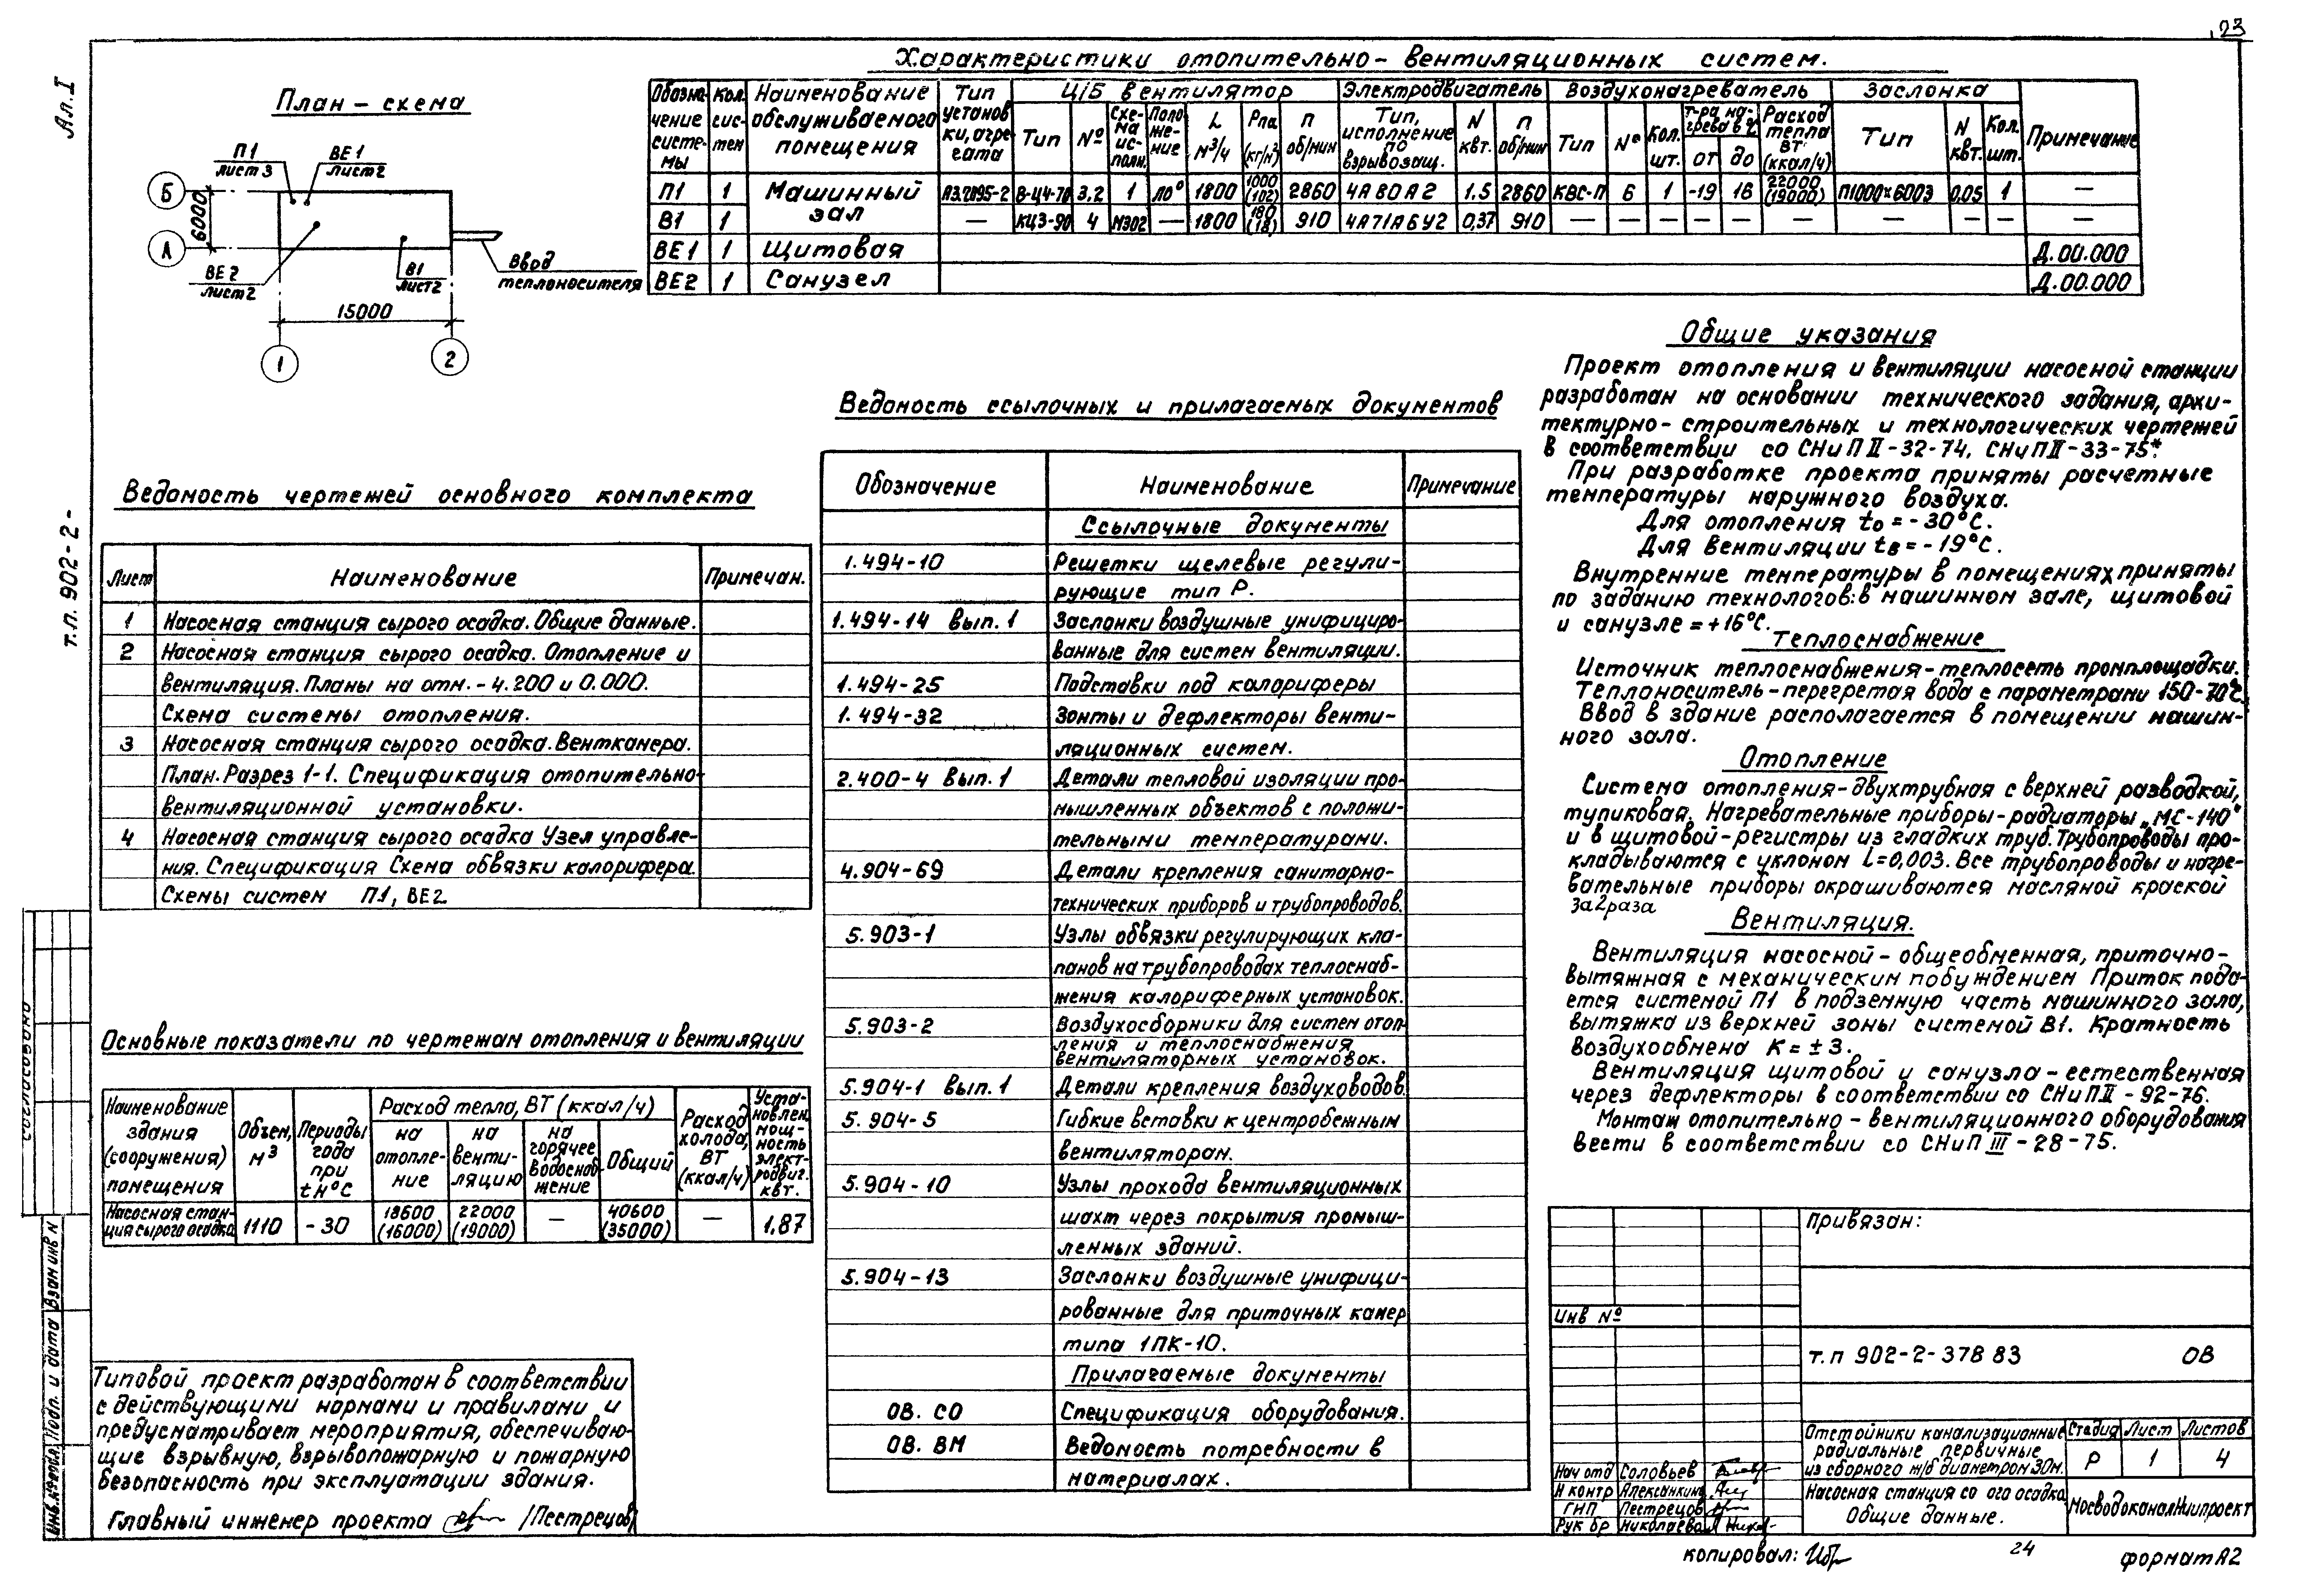 23
Ал. I
т.п. 902-2-
План-схема
П1
лист 3
ВЕ1
лист2
Б
А
6000
ВЕ2
лист2
В1
лист2
Ввод
теплоносителя
15000
1
2
Характеристики отопительно-вентиляционных систем.
Обозначение системы
Кол. систем
Наименование обслуживаемого помещения
Тип установки, агрегата
Ц/Б вентилятор
Электродвигатель
Воздухонагреватель
Заслонка
Примечание
Тип
№
Схема исполн.
Положение
L м³/ч
Pпа (кг/м²)
n об/мин
Тип, исполнение по взрывозащ.
N квт.
n об/мин
Тип
№
Кол. шт.
т-ра нагрева в °С
от
до
Расход тепла ВТ (ккал/ч)
Тип
N квт.
Кол. шт.
П1 1 Машинный зал А3.2095-2 В-Ц4-70 3.2 1 Л0° 1800 1000 (102) 2860 4А80А2 1.5 2860 КВС-П 6 1 -19 16 22000 (19000) П1000х600Э 0,05 1 —
В1 1 — КЦ3-90 4 М302 — 1800 180 (18) 910 4А71А6У2 0,37 910 — — — — — — — — — —
ВЕ1 1 Щитовая Д.00.000
ВЕ2 1 Санузел Д.00.000
Ведомость чертежей основного комплекта
Лист Наименование Примечан.
1 Насосная станция сырого осадка. Общие данные.
2 Насосная станция сырого осадка. Отопление и
вентиляция. Планы на отм. -4.200 и 0.000.
Схема системы отопления.
3 Насосная станция сырого осадка. Венткамера.
План. Разрез 1-1. Спецификация отопительно-
вентиляционной установки.
4 Насосная станция сырого осадка Узел управле-
ния. Спецификация Схема обвязки калорифера.
Схемы систем П1, ВЕ2
Основные показатели по чертежам отопления и вентиляции
Наименование здания (сооружения) помещения
Объем, м³
Периоды года при tн°С
Расход тепла, ВТ (ккал/ч)
на отопление
на вентиляцию
на горячее водоснабжение
Общий
Расход холода, ВТ (ккал/ч)
Установлен. мощность электродвиг. квт.
Насосная станция сырого осадка 1110 -30 18600 (16000) 22000 (19000) — 40600 (35000) — 1,87
Типовой проект разработан в соответствии
с действующими нормами и правилами и
предусматривает мероприятия, обеспечиваю-
щие взрывную, взрывопожарную и пожарную
безопасность при эксплуатации здания.
Главный инженер проекта /Пестрецов/
Ведомость ссылочных и прилагаемых документов
Обозначение Наименование Примечание
Ссылочные документы
1.494-10 Решетки щелевые регули-
рующие тип Р.
1.494-14 вып. 1 Заслонки воздушные унифициро-
ванные для систем вентиляции.
1.494-25 Подставки под калориферы
1.494-32 Зонты и дефлекторы венти-
ляционных систем.
2.400-4 Вып. 1 Детали тепловой изоляции про-
мышленных объектов с положи-
тельными температурами.
4.904-69 Детали крепления санитарно-
технических приборов и трубопроводов.
5.903-1 Узлы обвязки регулирующих кла-
панов на трубопроводах теплоснаб-
жения калориферных установок.
5.903-2 Воздухосборники для систем отоп-
ления и теплоснабжения
вентиляторных установок.
5.904-1 вып. 1 Детали крепления воздуховодов
5.904-5 Гибкие вставки к центробежным
вентиляторам.
5.904-10 Узлы прохода вентиляционных
шахт через покрытия промыш-
ленных зданий.
5.904-13 Заслонки воздушные унифици-
рованные для приточных камер
типа 1ПК-10.
Прилагаемые документы
ОВ. СО Спецификация оборудования.
ОВ. ВМ Ведомость потребности в
материалах.
Общие указания
Проект отопления и вентиляции насосной станции
разработан на основании технического задания, архи-
тектурно-строительных и технологических чертежей
в соответствии со СНиП II-32-74, СНиП II-33-75*.
При разработке проекта приняты расчетные
температуры наружного воздуха.
Для отопления tо = -30°С.
Для вентиляции tв = -19°С.
Внутренние температуры в помещениях приняты
по заданию технологов: в машинном зале, щитовой
и санузле = +16°С.
Теплоснабжение
Источник теплоснабжения-теплосеть промплощадки.
Теплоноситель-перегретая вода с параметрами 150-70°С.
Ввод в здание располагается в помещении машин-
ного зала.
Отопление
Система отопления-двухтрубная с верхней разводкой,
тупиковая. Нагревательные приборы-радиаторы „МС-140"
и в щитовой-регистры из гладких труб. Трубопроводы про-
кладываются с уклоном i=0,003. Все трубопроводы и нагре-
вательные приборы окрашиваются масляной краской
за 2 раза
Вентиляция.
Вентиляция насосной-общеобменная, приточно-
вытяжная с механическим побуждением Приток пода-
ется системой П1 в подземную часть машинного зала,
вытяжка из верхней зоны системой В1. Кратность
воздухообмена К = ± 3.
Вентиляция щитовой и санузла-естественная
через дефлекторы в соответствии со СНиП II-92-76.
Монтаж отопительно-вентиляционного оборудования
вести в соответствии со СНиП III-28-75.
Привязан:
Инв №
т.п 902-2-378 83 ОВ
Отстойники канализационные
радиальные первичные
из сборного ж/б диаметром 30м.
Стадия Лист Листов
Р 1 4
Насосная станция сы ого осадка
Общие данные.
МосводоканалНИИпроект
Нач отд Соловьев
Н контр Алексанкина
ГИП Пестрецов
Рук бр Николаева
Согласовано
Инв.№подл. Подп. и дата Взам инв N
копировал:
24
формат А2